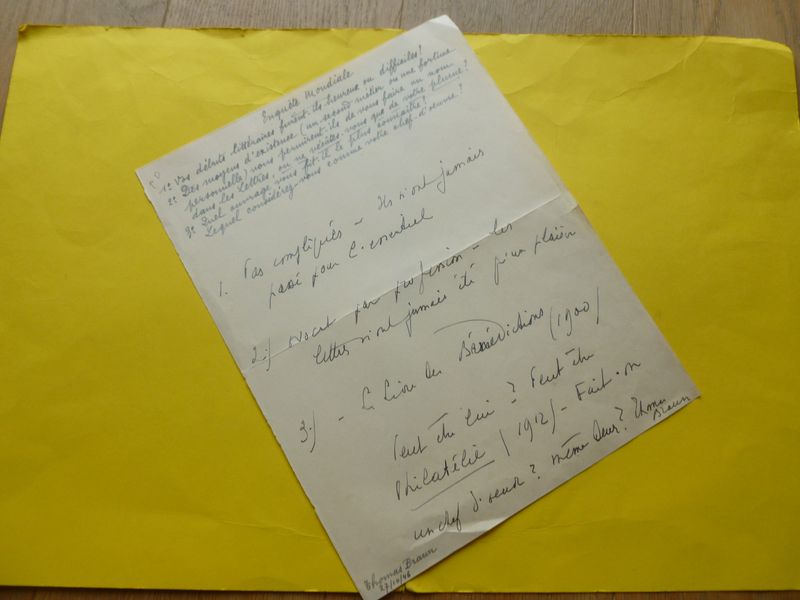 Enquête Mondiale
1º Vos débuts littéraires furent-ils heureux ou difficiles?
2º Des moyens d'existence (un second métier ou une fortune
personnelle) vous permirent-ils de vous faire un nom
dans les Lettres, ou ne vécûtes-vous que de votre plume?
3º Quel ouvrage vous fit-il le plus connaître?
Lequel considérez-vous comme votre chef-d'œuvre?
1. Pas compliqués – Ils n'ont jamais
passé pour l'essentiel
2.) Avocat par profession – les
lettres n'ont jamais été qu'un plaisir
3.) – Le Livre des Bénédictions (1900)
Peut-être lui? Peut-être
Philatélie (1912) – Fait-on
un chef d'œuvre? même deux? Thomas
Braun
Thomas Braun
27/10/46